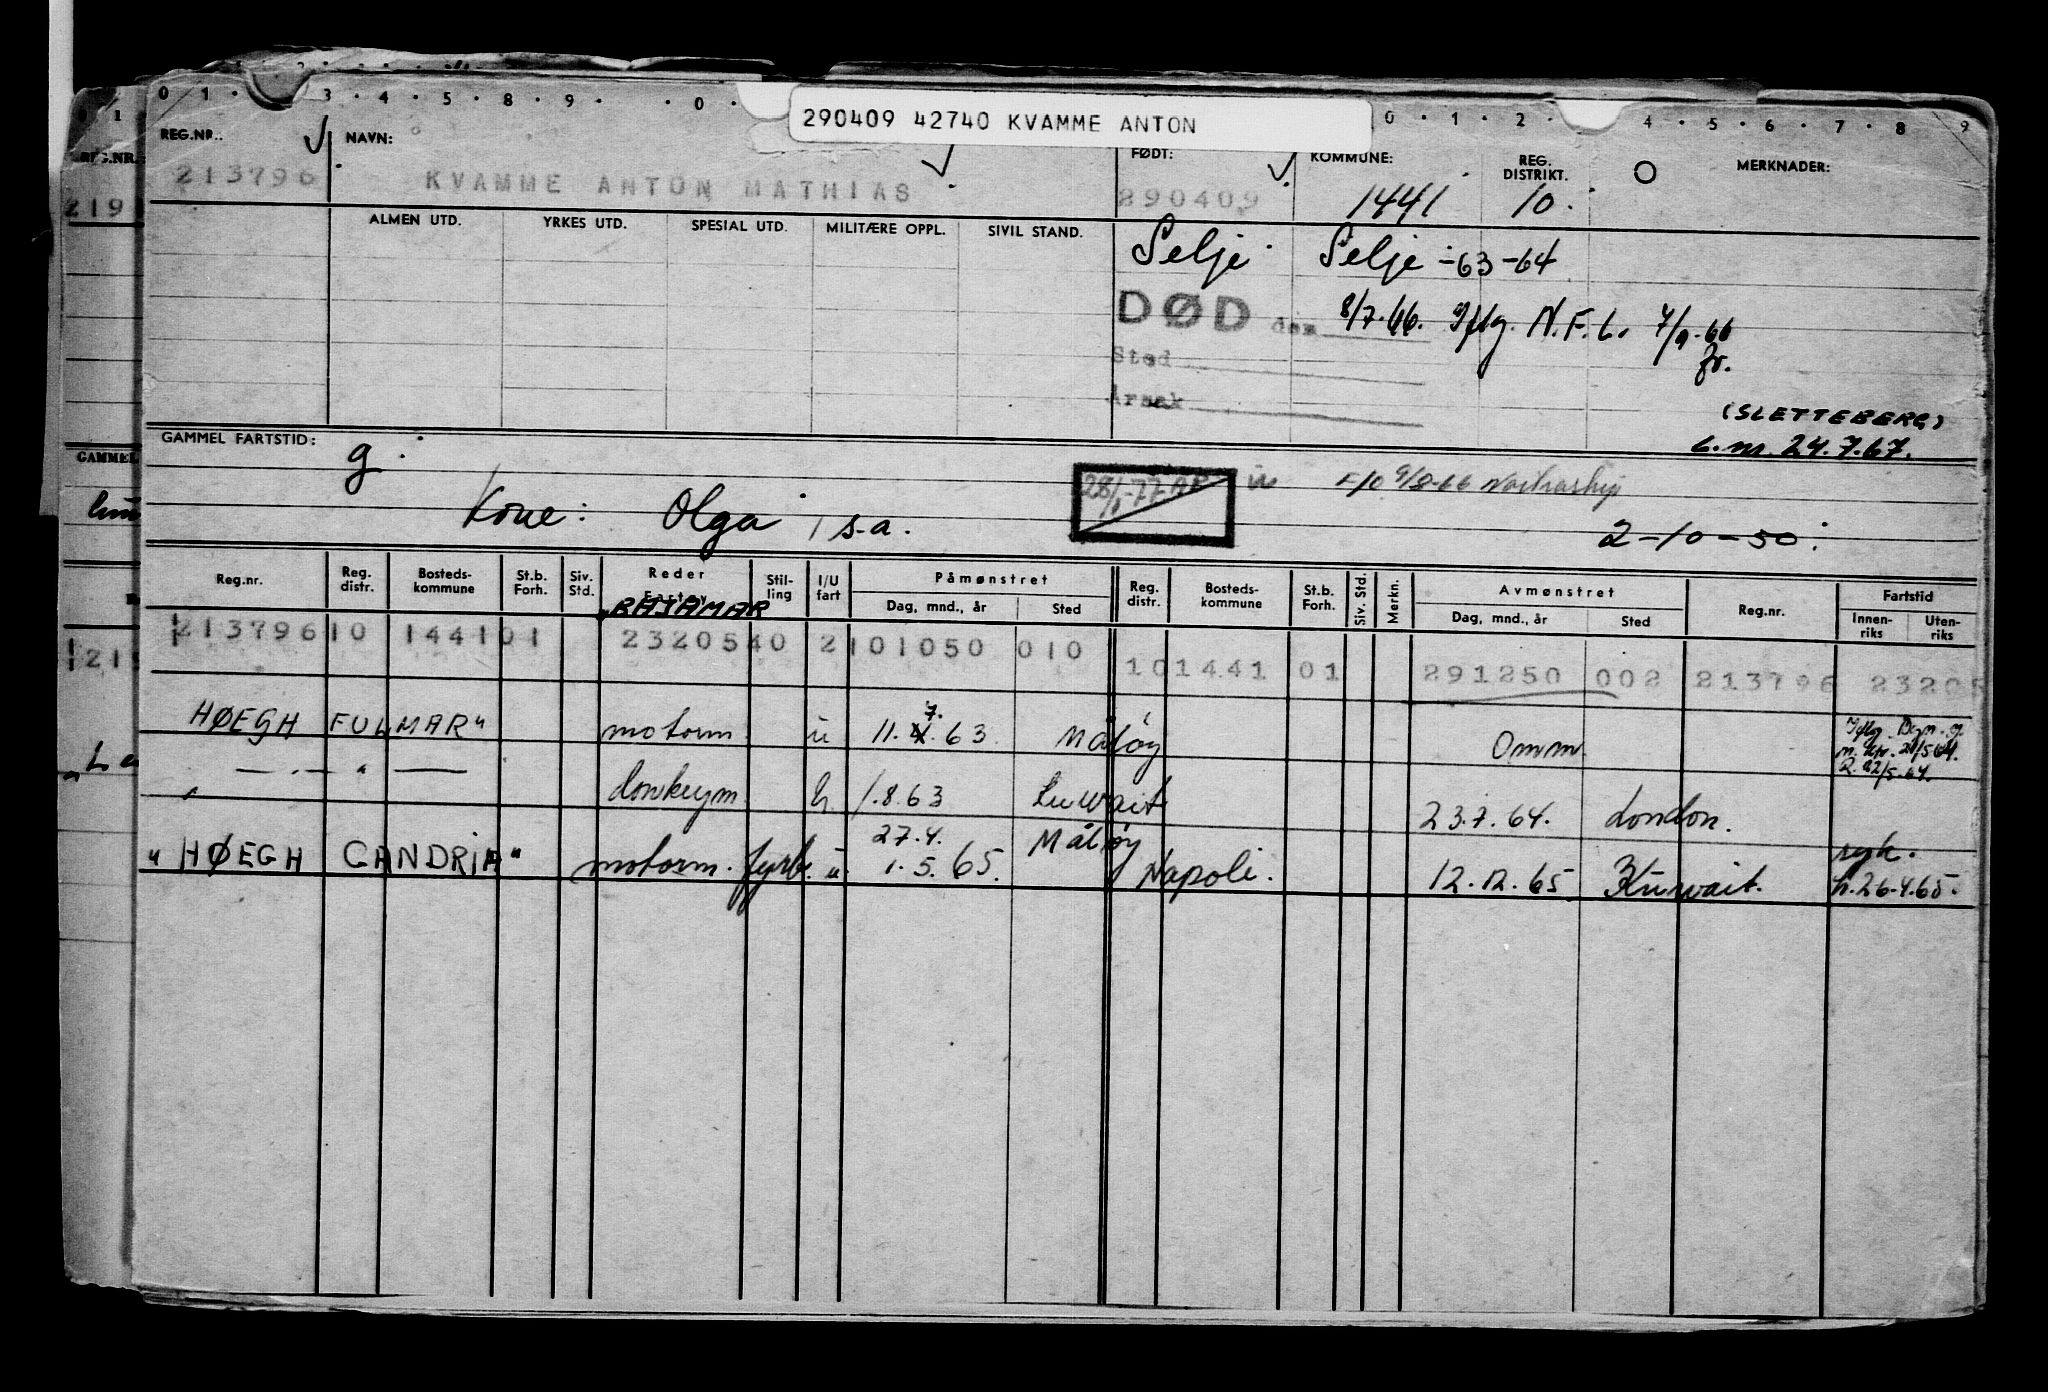 0 1 · 3 · 4 · 5 · 8 · 9 · · 0 · 0 · 1 · 2 · 4 · 5 · 6 · 7 · 8 9
290409 42740 KVAMME ANTON
REG.NR.. NAVN: FØDT: KOMMUNE: REG. DISTRIKT. MERKNADER:
213796 KVAMME ANTON MATHIAS 290409 1441 10.
ALMEN UTD. YRKES UTD. SPESIAL UTD. MILITÆRE OPPL. SIVIL STAND. Selje Selje -63-64
DØD den 8/7.66. Iflg. N.F.L. 7/9.66
Sted fr.
Årsak
(SLETTEBERG)
L.m. 24.7.67.
GAMMEL FARTSTID: g.
28/1-77 AR F/O 9/8-66 Nortraship
Kone: Olga s.a. 2-10-50.
Reg.nr. Reg. distr. Bosteds- kommune St.b. Forh. Siv. Std. Reder Fartøy Stil- ling I/U fart Påmønstret Reg. distr. Bosteds- kommune St.b. Forh. Siv. Std. Merkn. Avmønstret Reg.nr. Fartstid
Dag, mnd., år Sted Dag, mnd., år Sted Innen- riks Uten- riks
"BAJAMAR
213796 10 1441 01 232054 0 2 101050 010 10 1441 01 291250 002 213796 23205
HØEGH FULMAR" motorm. u 11.7.63 Måløy Omm. Iflg.
m. 21/5 64.
22/5.64.
— . — " — donkeym. 1.8.63 Kuwait 23.7.64. London.
"HØEGH GANDRIA" motorm. fyrb. u. 27.4. 1.5.65. Måløy Napoli. 12.12.65 Kuwait. syk.
h.26.4.65.